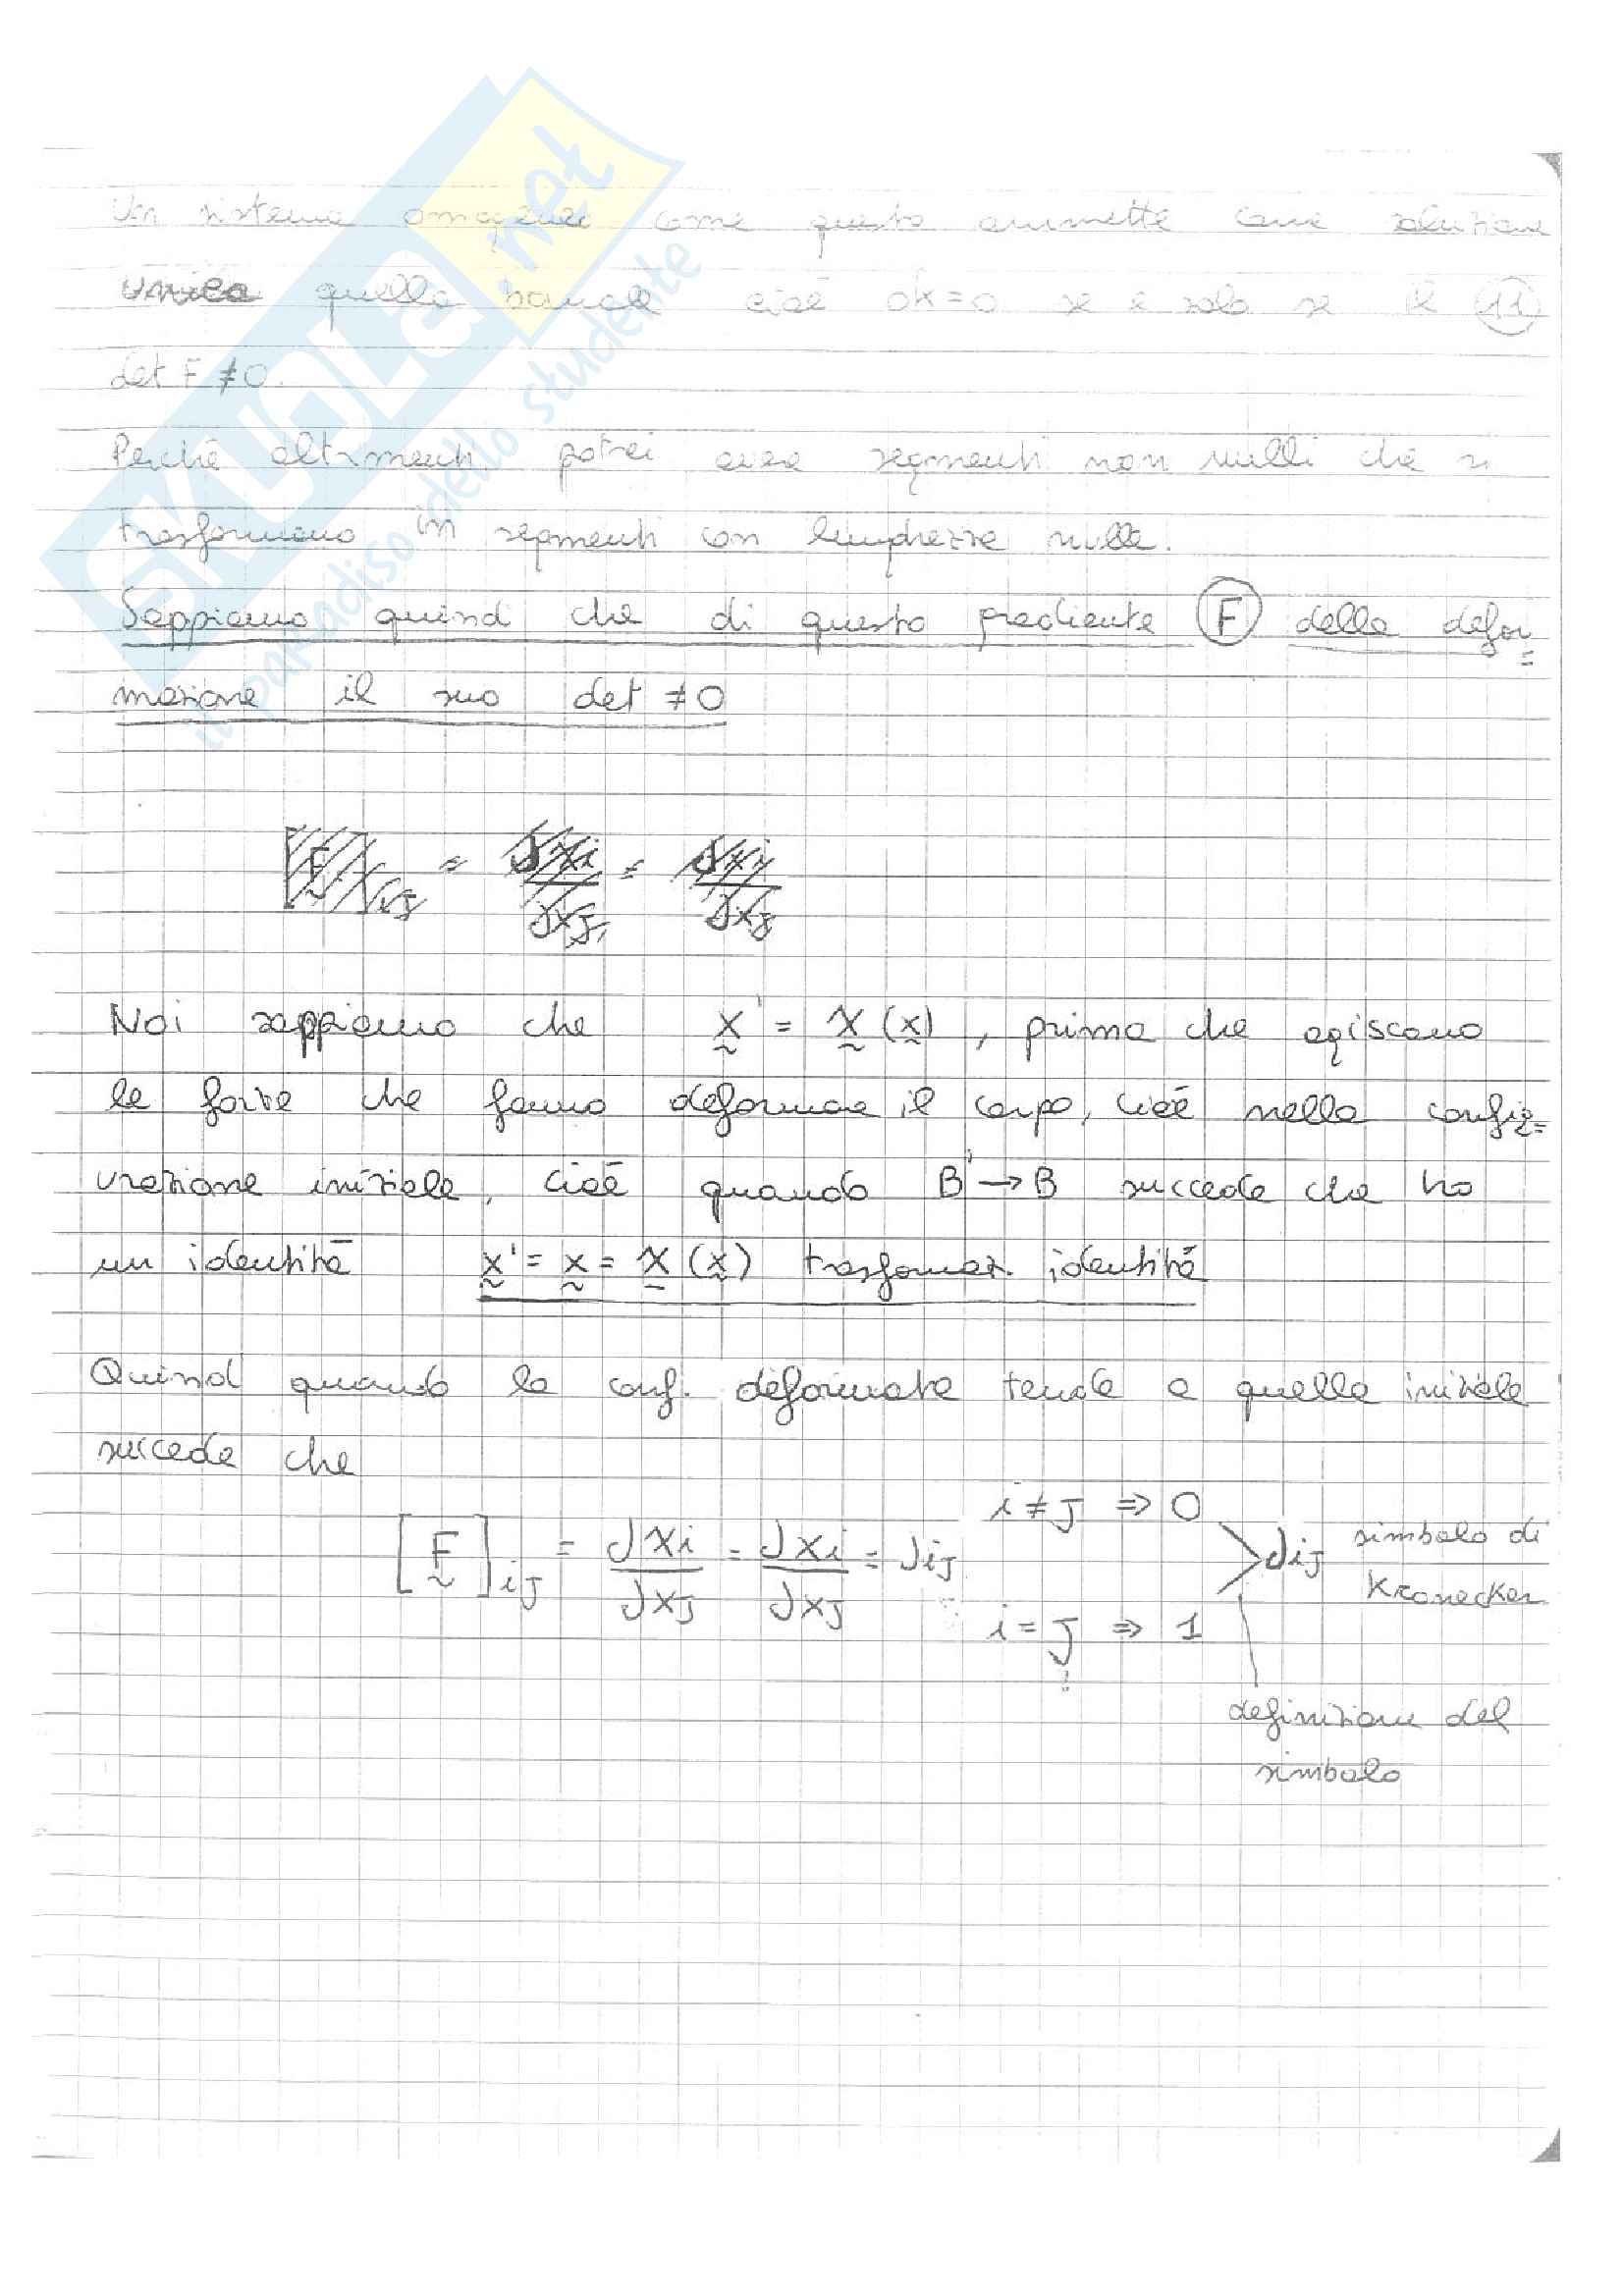 Un sistema omogeneo come questo ammette come soluzione
unica quella banale cioè dx=0 se e solo se il 11
det F ≠ 0.
Perché altrimenti potrei avere segmenti non nulli che si
trasformano in segmenti con lunghezze nulle.
Sappiamo quindi che di questo gradiente F della defor
mazione il suo det ≠ 0
Noi sappiamo che x' = χ(x), prima che agiscano
le forze che fanno deformare il corpo, cioè nella config=
urazione iniziale, cioè quando B' → B succede che ho
un identità x' = x = χ(x) trasformaz. identità
Quindi quando la conf. deformata tende a quella iniziale
succede che
i ≠ J ⇒ 0
[F]iJ = ∂χi/∂xJ = ∂xi/∂xJ = δiJ > δiJ simbolo di
Kronecker
i = J ⇒ 1
definizione del
simbolo
SKUOLA.net
il paradiso dello studente